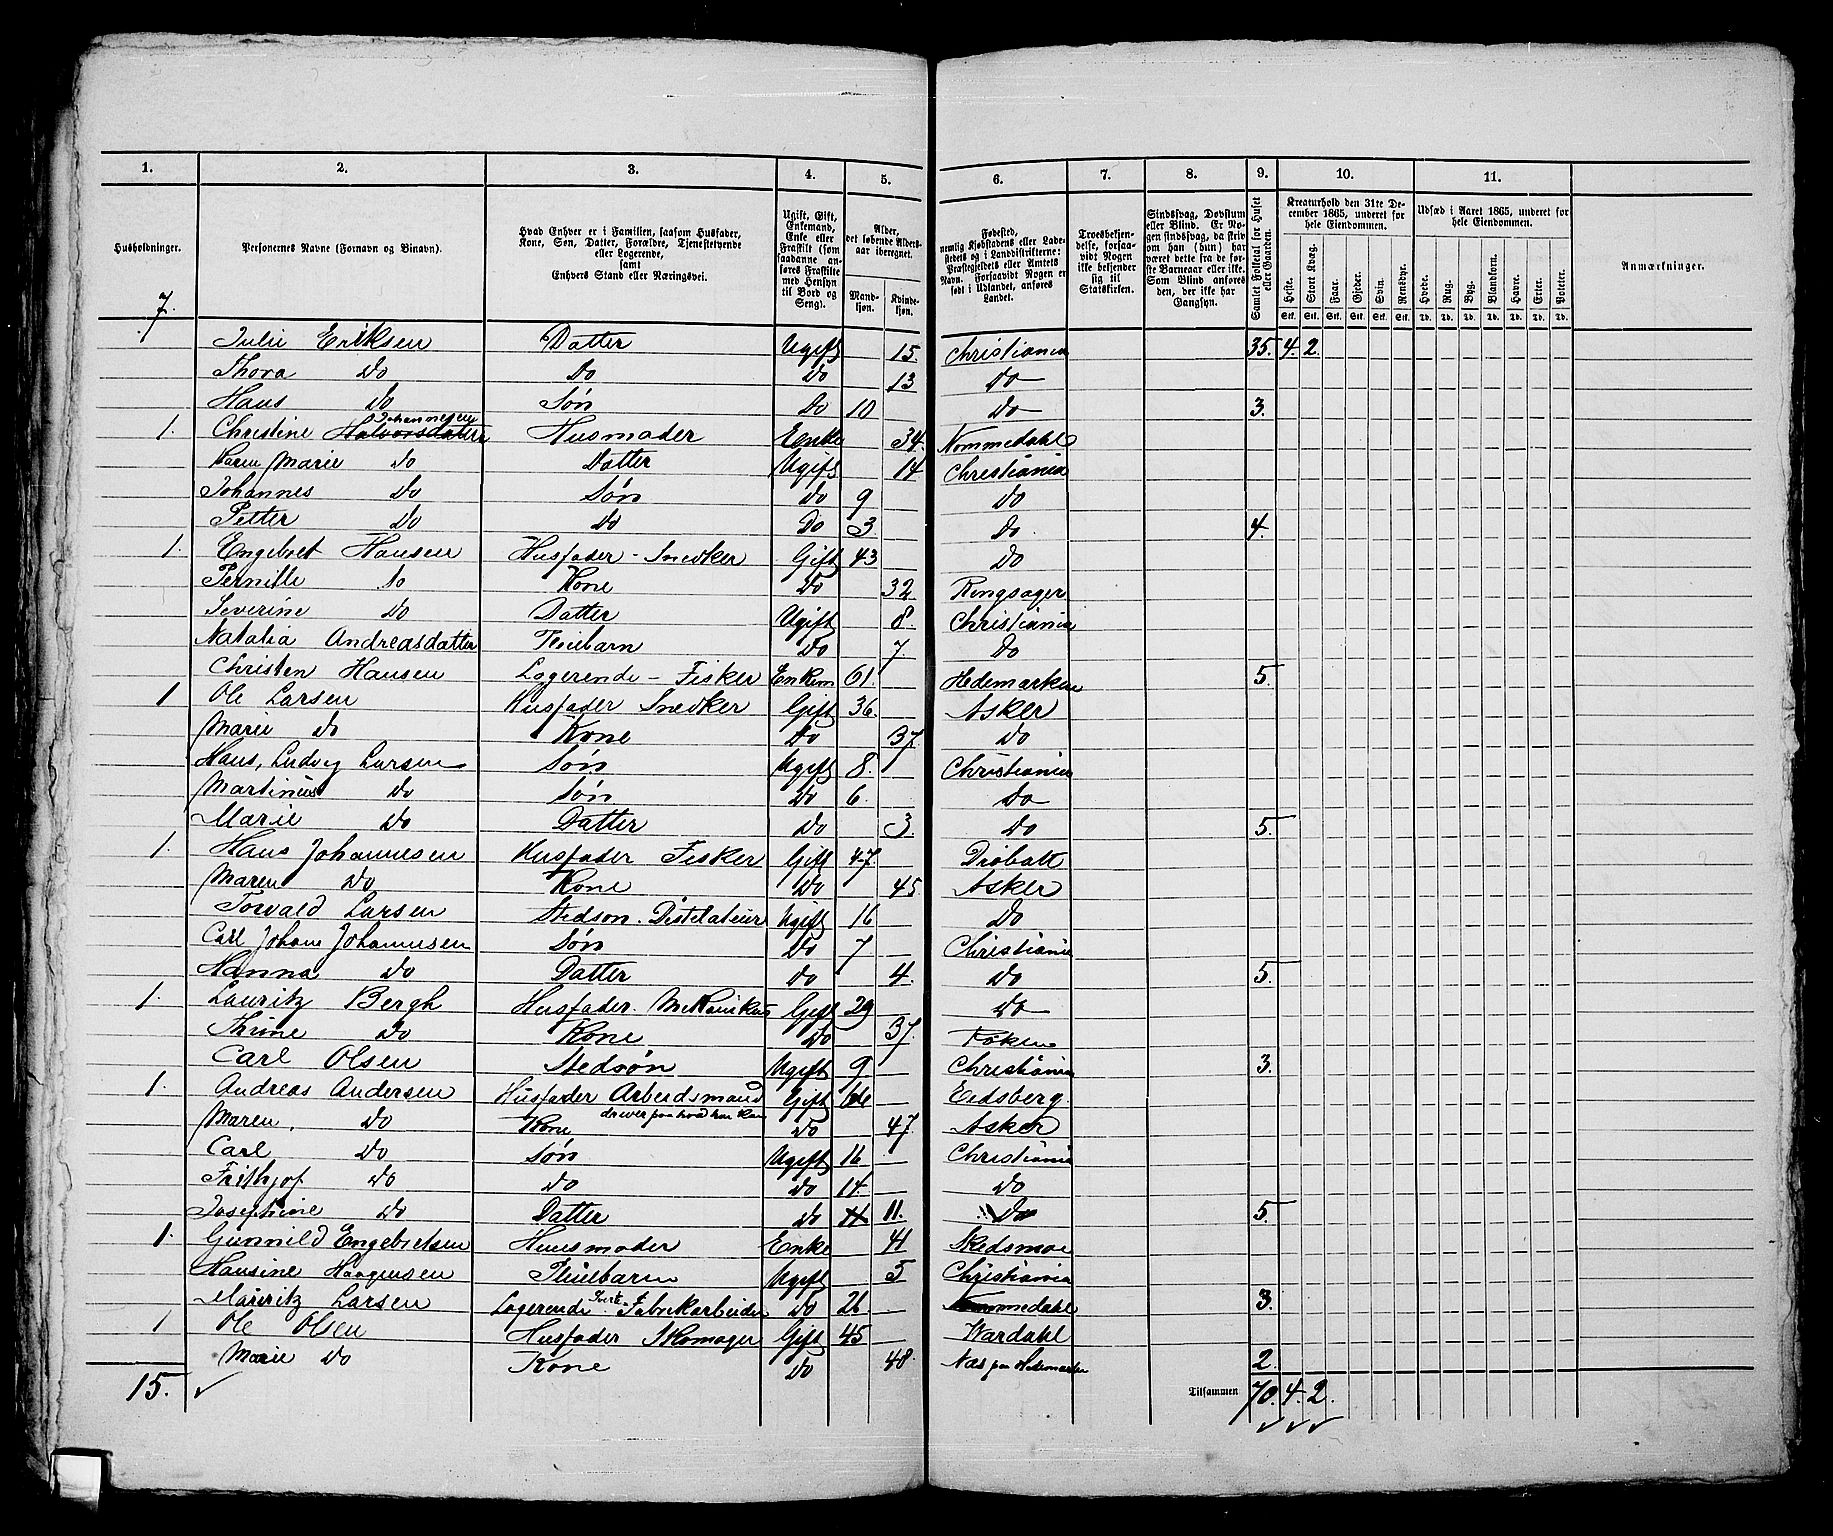 1. 2. 3. 4. 5. 6. 7. 8. 9. 10. 11.
Husholdninger.
Personernes Navne (Fornavn og Binavn).
Hvad Enhver er i Familien, saasom Husfader, Kone, Søn, Datter, Forældre, Tjenestetyende eller Logerende, samt Enhvers Stand eller Næringsvei.
Ugift, Gift, Enkemand, Enke eller Fraskilt (som saadanne anføres Fraskilte med Hensyn til Bord og Seng).
Alder, det løbende Aldersaar iberegnet.
Mandkjøn. Kvindekjøn.
Fødested, nemlig Kjøbstadens eller Ladestedets og i Landdistrikterne: Præstegjeldets eller Amtets Navn. Forsaavidt Nogen er født i Udlandet, anføres Landet.
Troesbekjendelse, forsaavidt Nogen ikke bekjender sig til Statskirken.
Sindssvag, Døvstum eller Blind. Er Nogen sindssvag, da skrives om han (hun) har været dette fra de første Barneaar eller ikke. Som Blind anføres den, der ikke har Gangsyn.
Samlet Folketal for Huset eller Gaarden.
Kreaturhold den 31te December 1865, underet for hele Eiendommen.
Heste. Stort Kvæg. Faar. Gjeder. Svin. Rensdyr.
Stk. Stk. Stk. Stk. Stk. Stk.
Udsæd i Aaret 1865, underet for hele Eiendommen.
Hvede. Rug. Byg. Blandkorn. Havre. Erter. Poteter.
Td. Td. Td. Td. Td. Td. Td.
Anmærkninger.
7.
Julie Eriksen Datter Ugift 15. Christiania 35. 4. 2.
Thora Do Do Do 13 Do
Hans Do Søn Do 10 Do 3.
1. Christine Halvorsdatter Johannesen Husmoder Enke 34. Nommedahl
Karen Marie Do Datter Ugift 14 Christiania
Johannes Do Søn Do 9 Do
Petter Do Do Do 3 Do 4.
1. Engebret Hansen Husfader - Snedker Gift 43 Do
Pernille Do Kone Do 32 Ringsager
Severine Do Datter Ugift 8. Christiania
Natalia Andreasdatter Pleiebarn Do 7 Do
Christen Hansen Logerende - Fisker Enkem 61. Hedemarken 5.
1 Ole Larsen Husfader Snedker Gift 36. Asker
Marie Do Kone Do 37 Do
Hans, Ludvig Larsen Søn Ugift 8. Christiania
Martinius Do Søn Do 6. Do
Marie Do Datter Do 3. Do 5.
1. Hans Johannesen Husfader Fisker Gift 47. Drøbakk
Maren Do Kone Do 45 Asker
Torvald Larsen Stedsøn. Distelateur Ugift 16 Do
Carl Johan Johannesen Søn Do 7 Christiania
Hanna Do Datter Do 4. Do 5.
1. Lauritz Bergh Husfader. Mekanikus Gift 29 Do
Thrine Do Kone Do 37.
Carl Olsen Stedsøn Ugift 9 Christiania 3.
1. Andreas Andersen Husfader Arbeidsmand Gift 66 Eidsberg.
driver paa hvad han kan
Maren. Do Kone Do 47 Asker
Carl Do Søn Ugift 16 Christiania
Frithjof Do Do Do 14. Do
Josephine Do Datter Do 11 11. Do 5.
1. Gunnild Engebretsen Huusmoder Enke 41 Skedsmoe
Hansine Haagensen Pleiebarn Ugift 5 Christiania
Mauritz Larsen Logerende Fabrikarbeider Do 26. Nommedahl 3.
1 Ole Olsen Husfader Skomager Gift 45 Wardahl
Marie Do Kone Do 48. Næs paa Hedemarken 2.
15. Tilsammen 70. 4. 2.